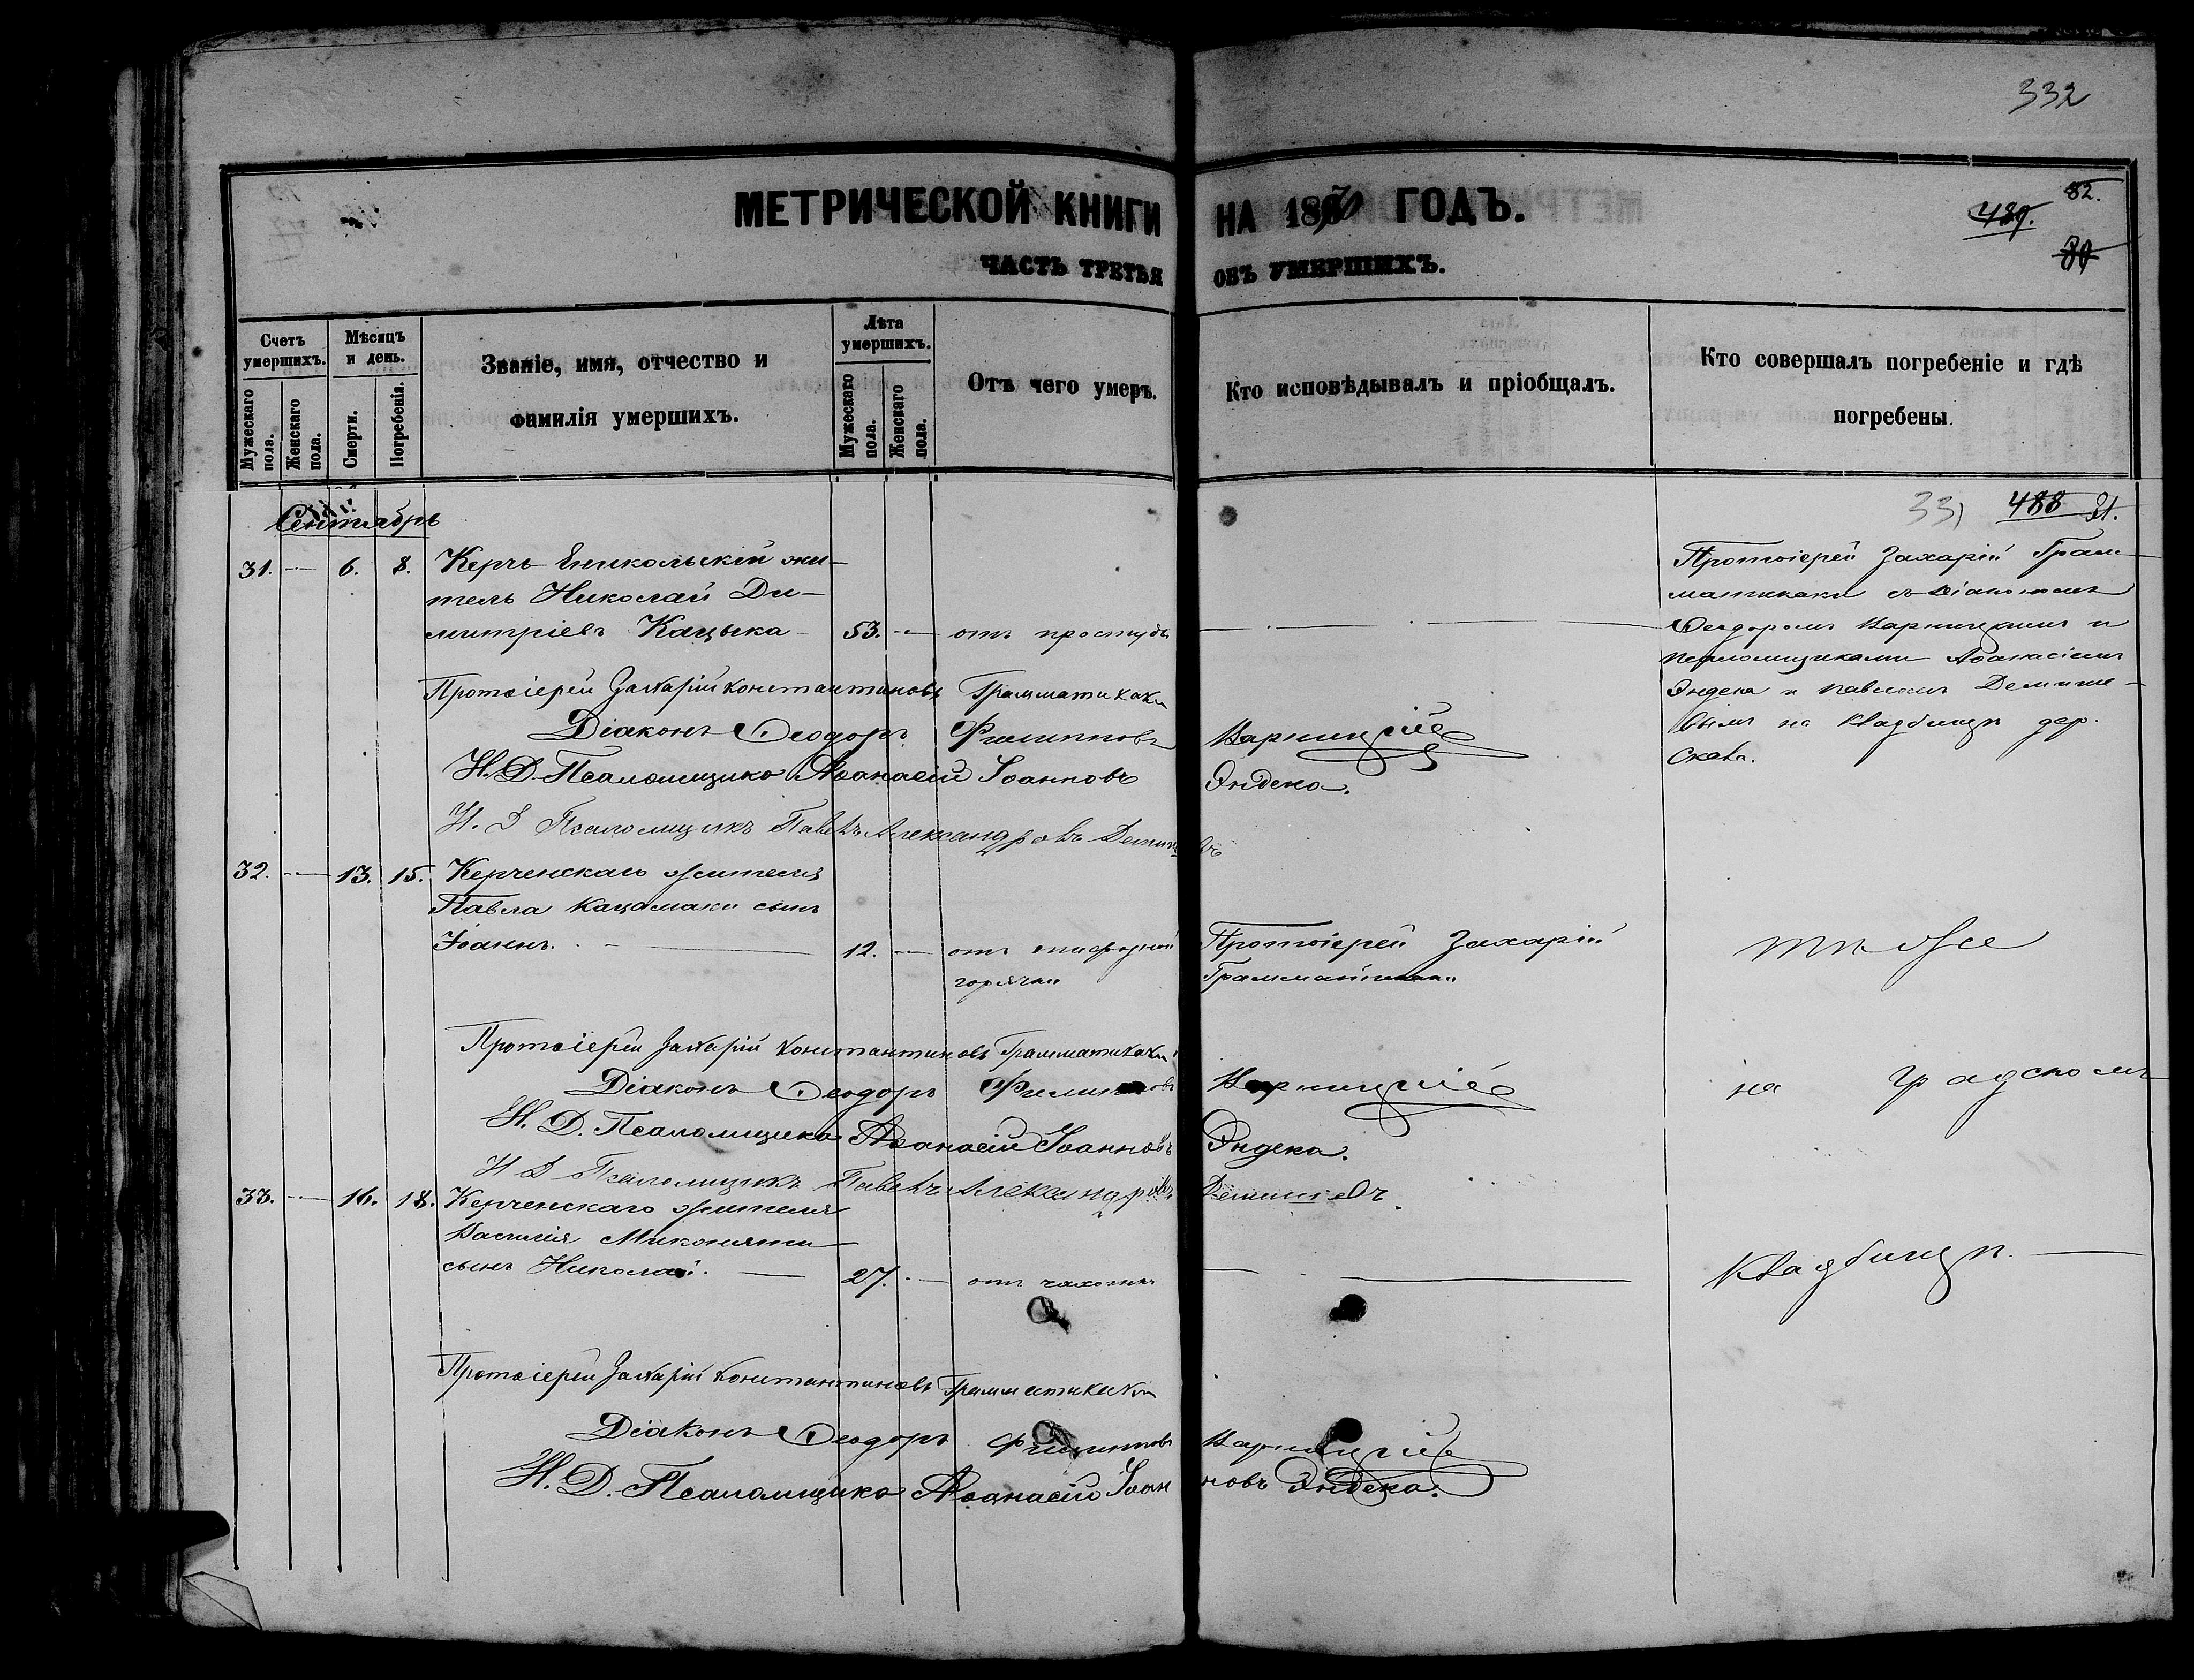 332
МЕТРИЧЕСКОЙ КНИГИ НА 1870 ГОДЪ.
82.
489.
80
ЧАСТЬ ТРЕТЬЯ ОБЪ УМЕРШИХЪ.
Счетъ умершихъ.
Мужескаго пола.
Женскаго пола.
Мѣсяцъ и день.
Смерти.
Погребенія.
Званіе, имя, отчество и
фамилія умершихъ.
Лѣта умершихъ.
Мужескаго пола.
Женскаго пола.
Отъ чего умеръ.
Кто исповѣдывалъ и пріобщалъ.
Кто совершалъ погребеніе и гдѣ
погребены.
331 488 81.
Сентябрь
31. — 6. 8. Керчь-Еникольскій жи-
тель Николай Ди-
митріевъ Кацыка — 53. — отъ простуды
Протоіерей Захарій Грам-
матикаки съ Діакономъ
Ѳеодоромъ Варницкимъ и
псаломщиками Аѳанасіемъ
Эндека и Павломъ Демише-
вымъ на кладбищѣ дер.
Протоіерей Захарій Константиновъ Грамматикаки
Діаконъ Ѳеодоръ Филипповъ Варницкій
И. Д. Псаломщика Аѳанасій Іоанновъ Эндека.
И. Д. Псаломщикъ Павелъ Александровъ Демишевъ
32. — 13. 15. Керченскаго жителя
Павла Кацамаки сынъ
Іоаннъ. — 12. — отъ тифозной
горячки
Протоіерей Захарій
Грамматикаки
тоже
Протоіерей Захарій Константиновъ Грамматикаки
Діаконъ Ѳеодоръ Филипповъ Варницкій
на градскомъ
И. Д. Псаломщика Аѳанасій Іоанновъ Эндека.
И Д Псаломщикъ Павелъ Александровъ Демишевъ.
33. — 16. 18. Керченскаго жителя
Василія
сынъ Николай. — 27. — отъ чахотки
кладбищѣ. —
Протоіерей Захарій Константиновъ Грамматикаки
Діаконъ Ѳеодоръ Филипповъ Варницкій
И. Д. Псаломщика Аѳанасій Іоанновъ Эндека.